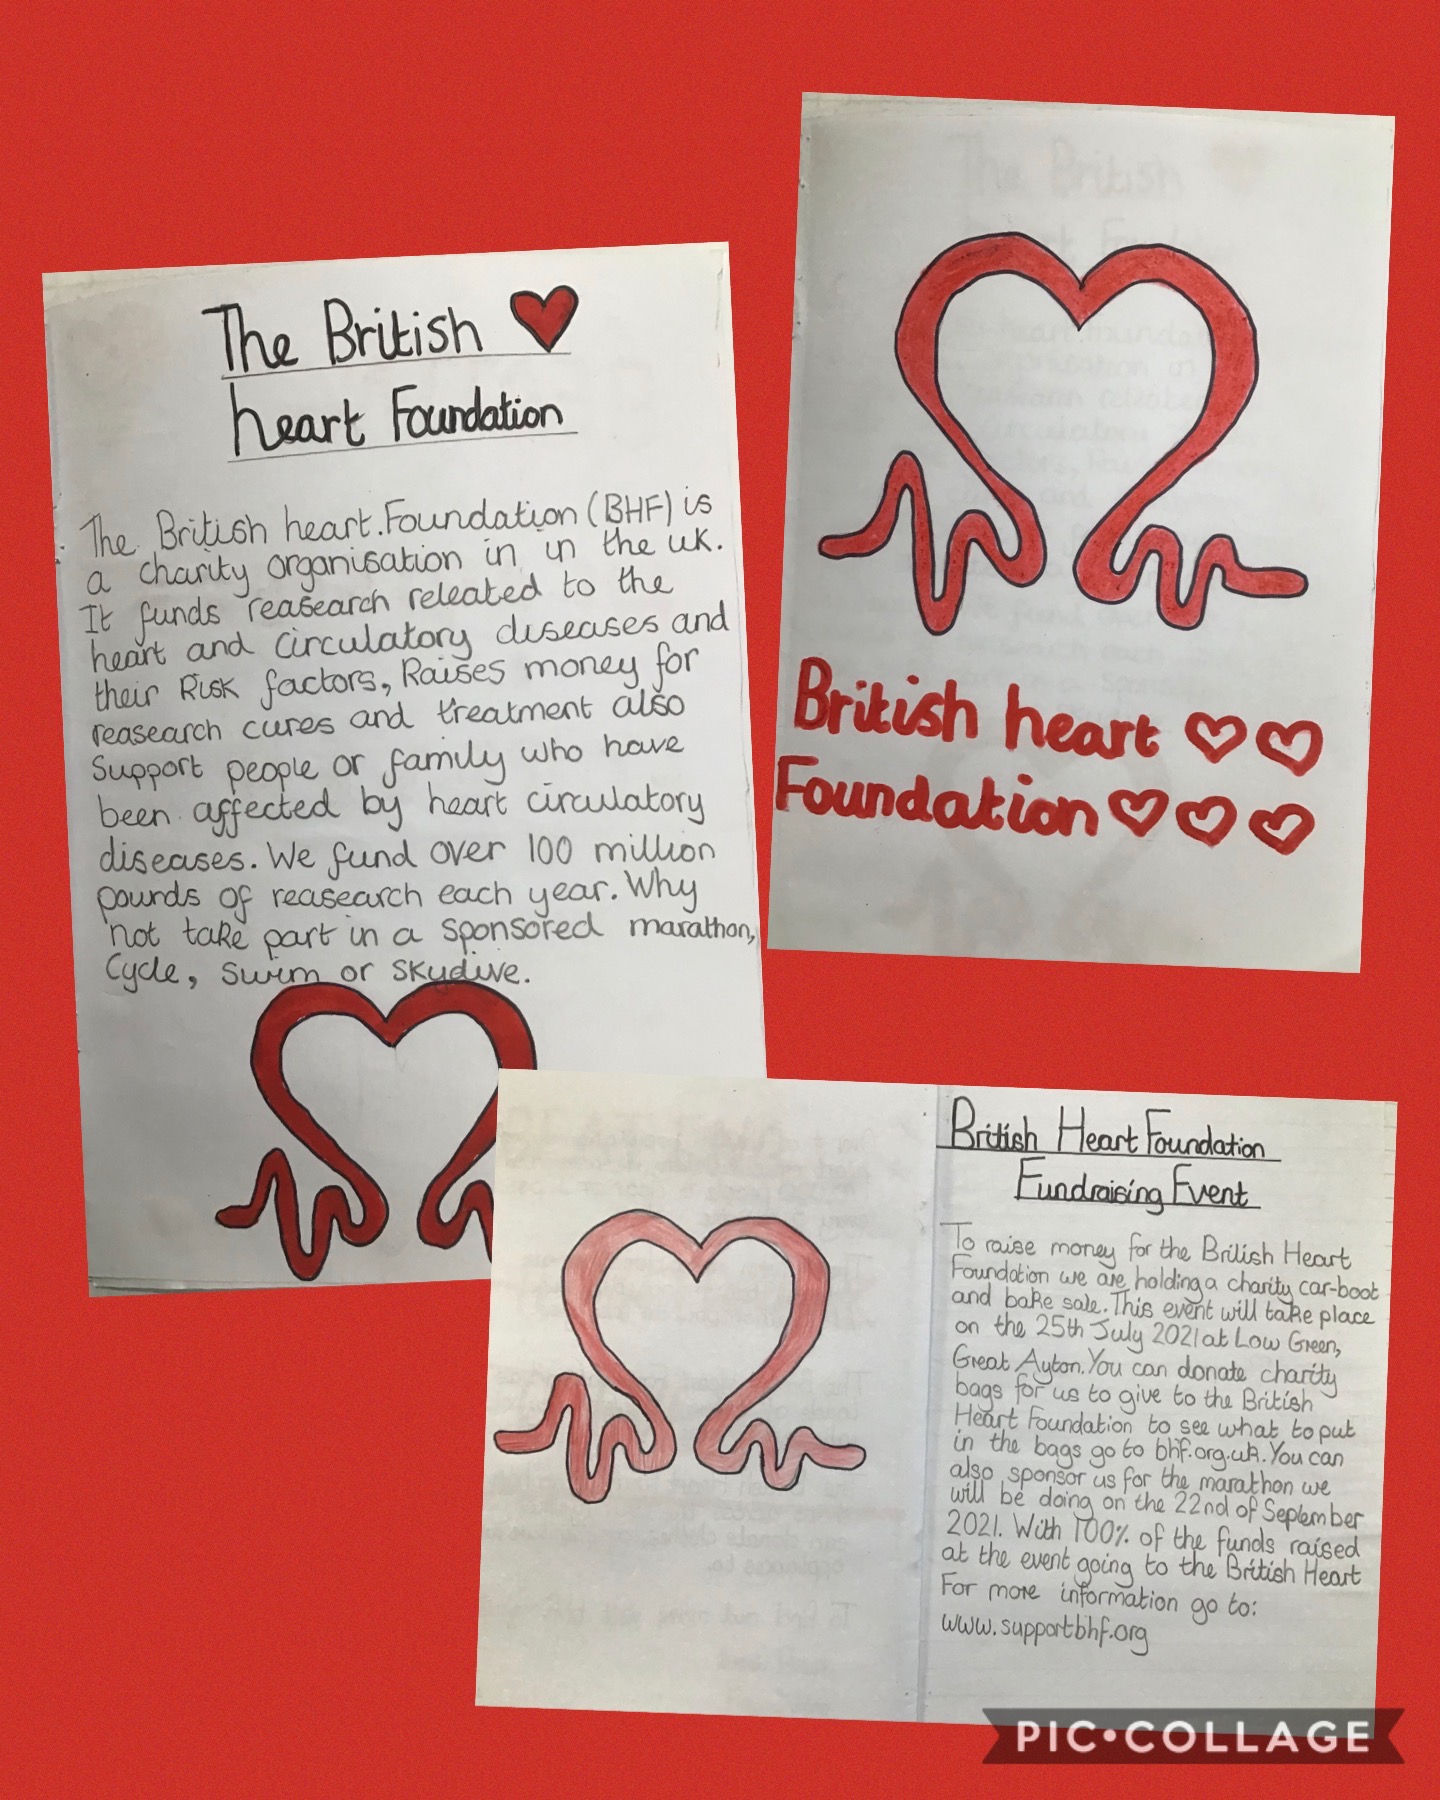 The British
heart Foundation
The British heart.Foundation (BHF) is
a charity organisation in in the UK.
It funds reasearch releated to the
heart and circulatory diseases and
their Risk factors, Raises money for
reasearch cures and treatment also
Support people or family who have
been affected by heart circulatory
diseases. We fund over 100 million
pounds of reasearch each year. Why
not take part in a sponsored marathon,
Cycle, swim or skydive.
British heart
Foundation
British Heart Foundation
Fundraising Event
To raise money for the British Heart
Foundation we are holding a charity car-boot
and bake sale. This event will take place
on the 25th July 2021 at Low Green,
Great Ayton. You can donate charity
bags for us to give to the British
Heart Foundation to see what to put
in the bags go to bhf.org.uk. You can
also sponsor us for the marathon we
will be doing on the 22nd of September
2021. With 100% of the funds raised
at the event going to the British Heart
For more information go to:
www.supportbhf.org
PIC•COLLAGE